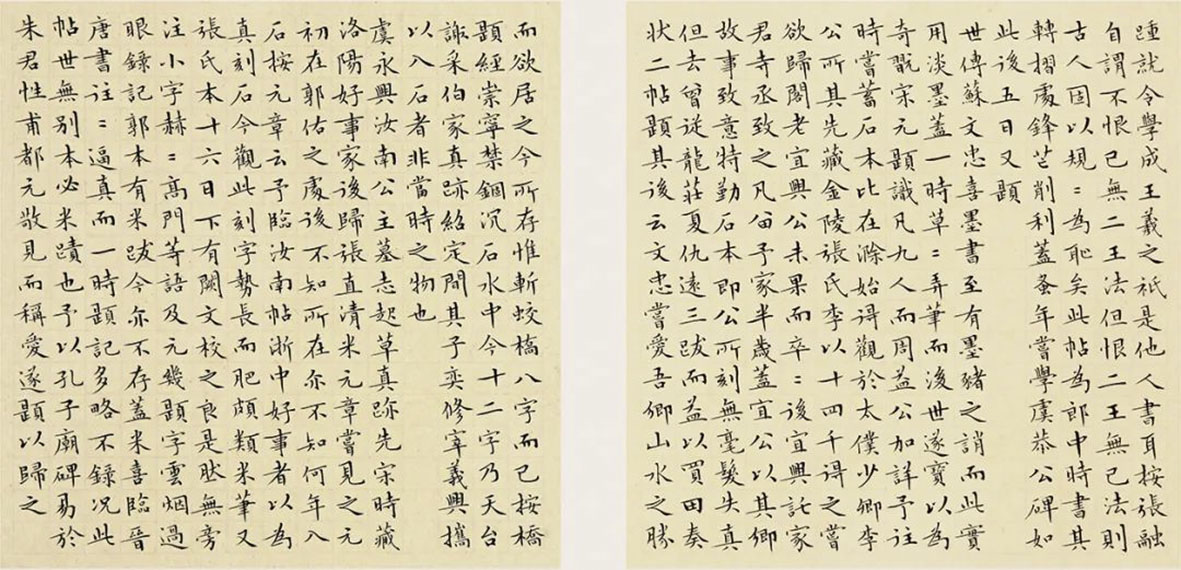 踵就令學成王羲之祇是他人書耳按張融
自謂不恨已無二王法但恨二王無已法則
古人固以規〻為恥矣此帖為郎中時書其
轉摺處鋒芒削利蓋蚤年嘗學虞恭公碑如
此後五日又題
世傳蘇文忠喜墨書至有墨豬之誚而此實
用淡墨蓋一時草〻弄筆而後世遂寶以為
奇翫宋元題識凡九人而周益公加詳予往
時嘗蓄石本比在滁始得觀於太僕少卿李
公所其先藏金陵張氏李以十四千得之嘗
欲歸閣老宜興公未果而卒〻後宜興託家
君寺丞致之凡留予家半歲蓋宜公以其卿
故事致意特勤石本即公所刻無毫髮失真
但去曾從龍莊夏仇遠三跋而益以買田奏
狀二帖題其後云文忠嘗愛吾卿山水之勝
而欲居之今所存惟斬蛟橋八字而已按橋
題經崇寧禁錮沉石水中今十二字乃天台
謝采伯家真跡紹定間其子奕修宰義興攜
以入石者非當時之物也
虞永興汝南公主墓志起草真跡先宋時藏
洛陽好事家後歸張直清米元章嘗見之元
初在郭佑之處後不知所在亦不知何年入
石按元章云予臨汝南帖浙中好事者以為
真刻石今觀此刻字勢長而肥頗類米筆又
張氏本十六日下有闕文校之良是然無旁
注小字赫〻高門等語及元幾題字雲烟過
眼錄記郭本有米跋今亦不存蓋米喜臨晉
唐書往〻逼真而一時題記多略不錄況此
帖世無別本必米蹟也予以孔子廟碑易於
朱君性甫都元敬見而稱愛遂題以歸之